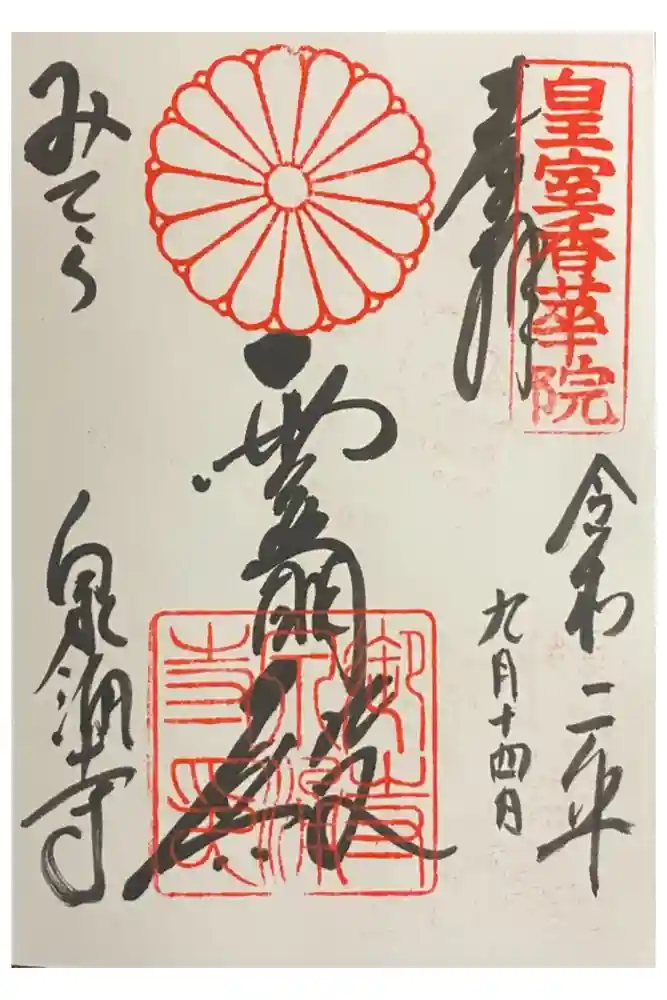 皇室香華院
奉拝
令和二年
九月十四日
霊明殿
御寺
泉涌
みてら
泉涌寺